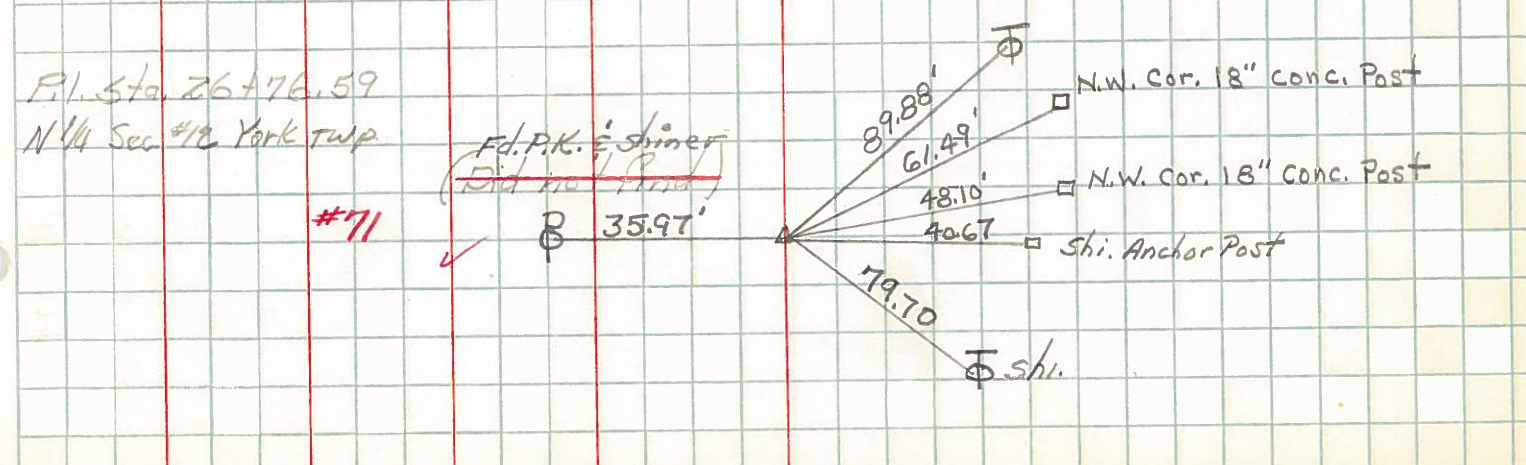 P.I. Sta. 26+76.59
N 1/4 Sec #12 York Twp.
Fd. P.K. & Shiner
(Did not find)
#71
P
35.97'
89.88'
61.49'
48.10'
40.67
79.70
T
N.W. Cor. 18" Conc. Post
N.W. Cor. 18" Conc. Post
Shi. Anchor Post
T Shi.